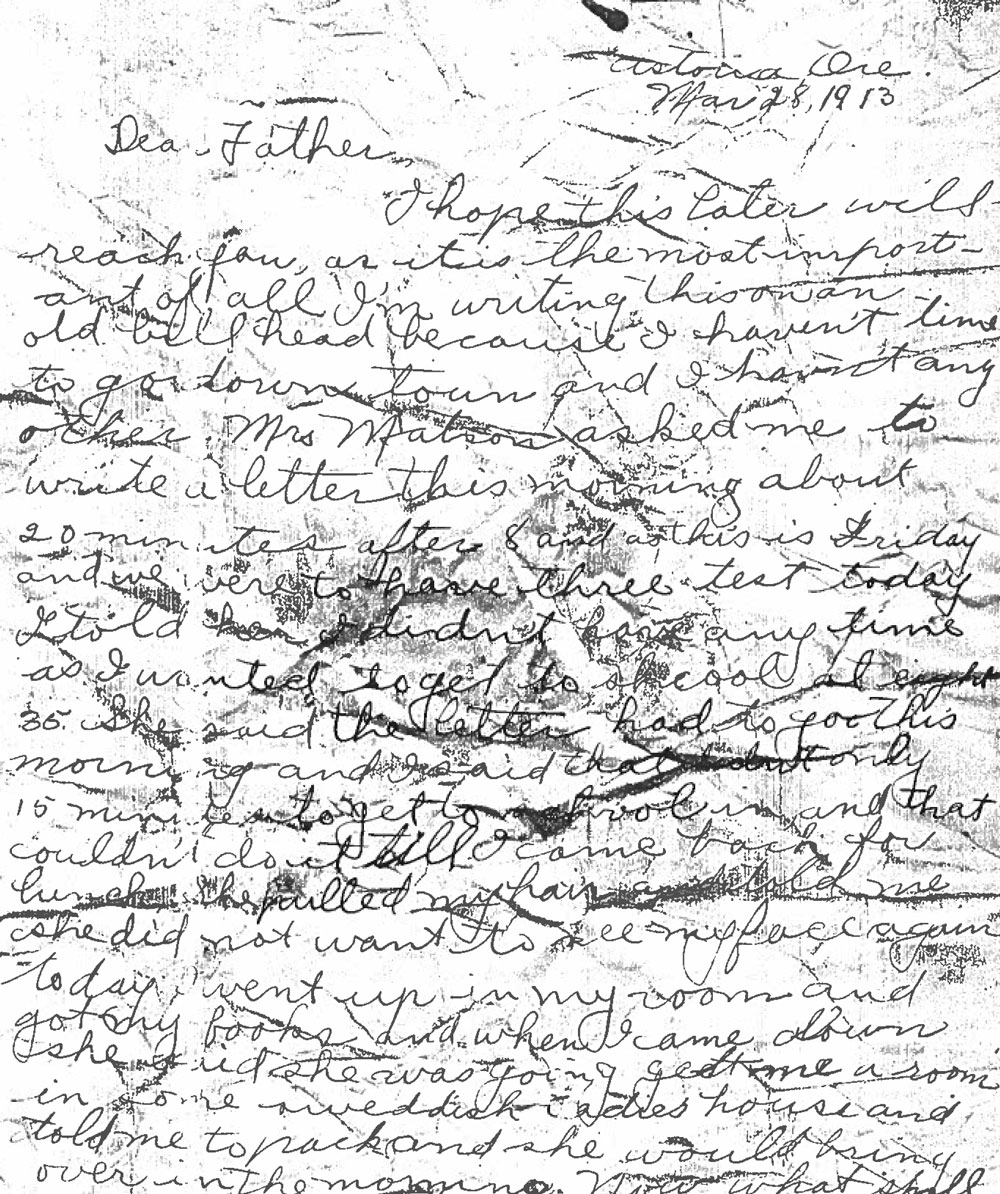 Astoria Ore.
Mar 28, 1913
Dear Father,
I hope this later will
reach you, as it is the most import-
ant of all I'm writing this on an
old bill head because I haven't time
to go down town and I havn't any
other. Mrs Matson asked me to
write a letter this morning about
20 minutes after 8 and as this is Friday
and we were to have three test today
I told her I didn't have any time
as I wanted to get to shcool at eight
35. She said the letter had to goo this
morning and I said that I had only
15 minutes to get to school in and that
couldn't do it till I came back for
lunch. She pulled my hair and told me
she did not want to see my face again
today. I went up in my room and
got my books and when I came down
she said she was going gett me a room
in some sweddish ladies house and
told me to pack and she would bring
over in the morning. Now what shall